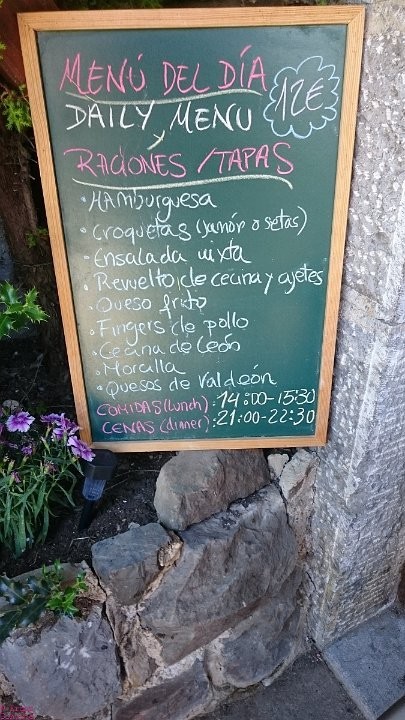 MENÚ DEL DÍA
12€
DAILY MENU
y
RACIONES / TAPAS
· Hamburguesa
· Croquetas (jamón o setas)
· Ensalada mixta
· Revuelto de cecina y ajetes
· Queso frito
· Fingers de pollo
· Cecina de León
· Morcilla
· Quesos de Valdeón
COMIDAS (lunch): 14:00-15:30
CENAS (dinner): 21:00-22:30